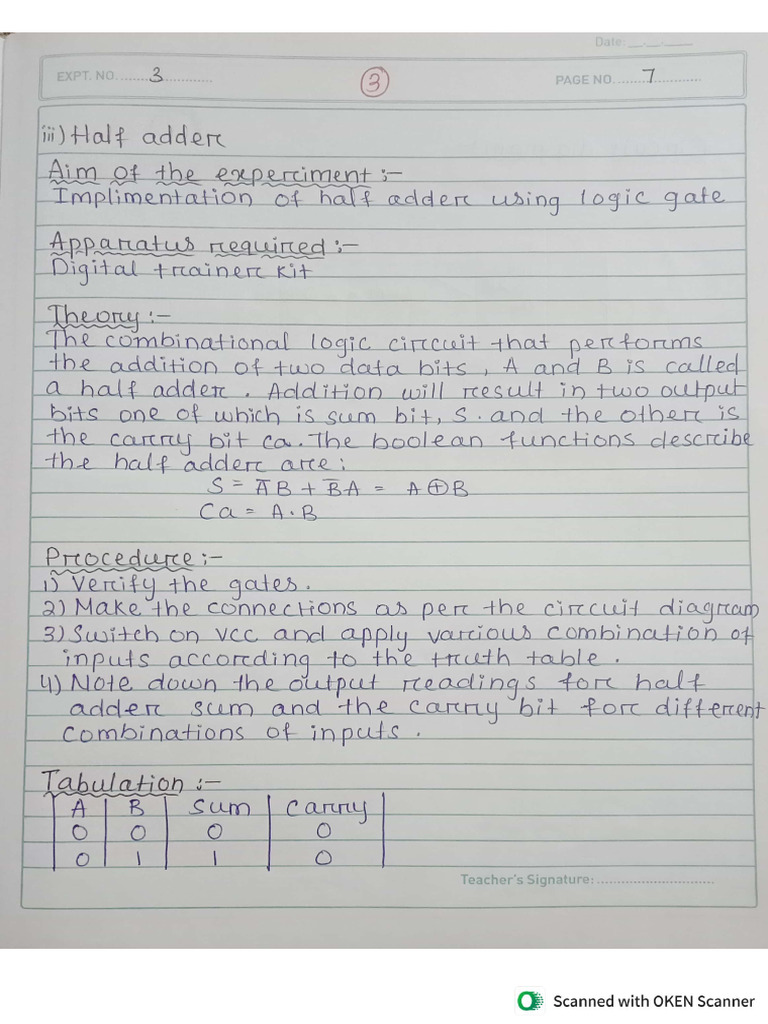 Date: __.__.____
EXPT. NO. ........3............
3
PAGE NO. ........7............
iii) Half adder
Aim of the experiment :-
Implimentation of half adder using logic gate
Apparatus required :-
Digital trainer kit
Theory :-
The combinational logic circuit that performs
the addition of two data bits, A and B is called
a half adder. Addition will result in two output
bits one of which is sum bit, S. and the other is
the carry bit ca. The boolean functions describe
the half adder are :
S = A̅B + B̅A = A⊕B
Ca = A.B
Procedure :-
1) Verify the gates.
2) Make the connections as per the circuit diagram
3) Switch on vcc and apply various combination of
inputs according to the truth table.
4) Note down the output readings for half
adder sum and the carry bit for different
combinations of inputs.
Tabulation :-
A B Sum Carry
0 0 0 0
0 1 1 0
Teacher's Signature: ..............................
Scanned with OKEN Scanner